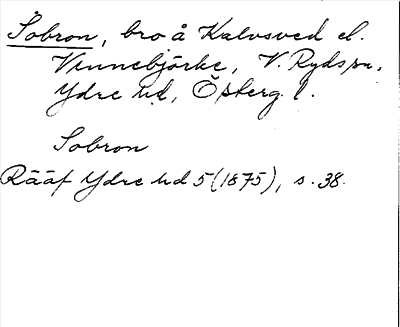 Sobron, bro å Kalvsved el.
Vinnebjörke, V. Ryds sn,
Ydre hd, Östergl.
Sobron
Rääf Ydre hd 5 (1875), s. 38.